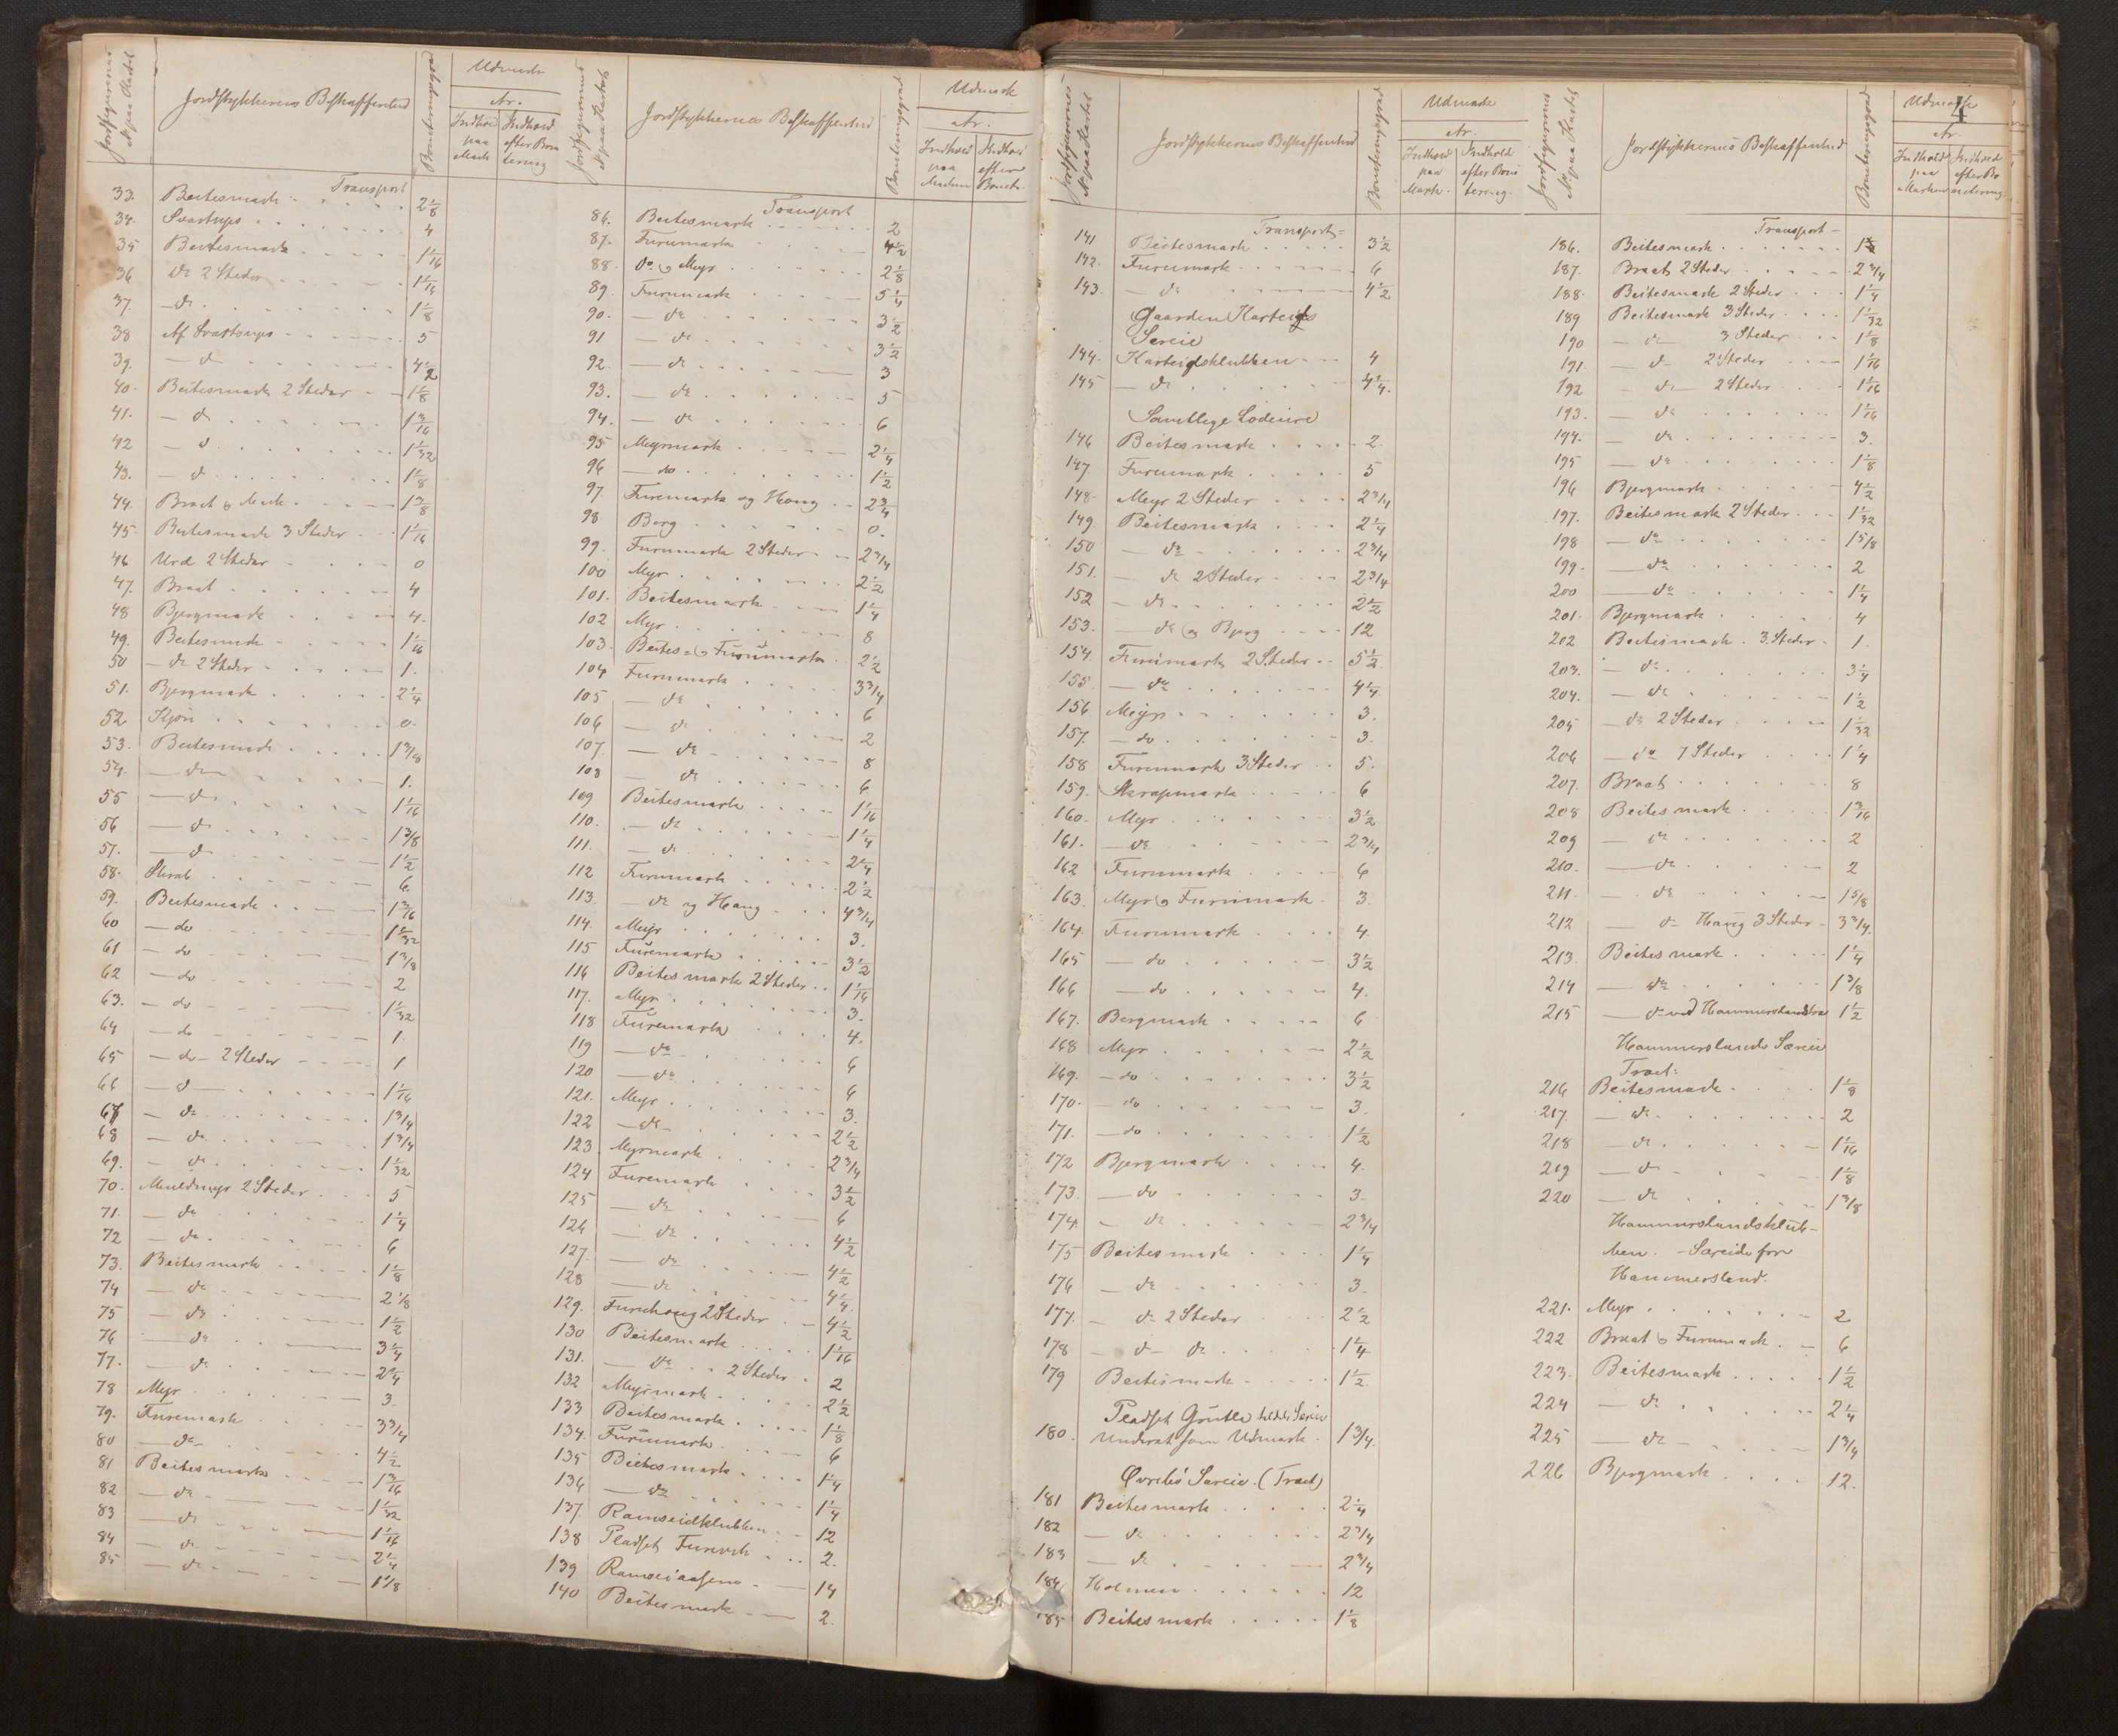 Jordfigurernes No paa Kartet | Jordstykkernes Beskaffenhed | Boniteringsgrad | Udmark
Ar.
Indhold paa Mark | Indhold efter Bonitering
Transport
33. Beitesmark 2 1/8
34. Svartmyr 4
35 Beitesmark 1 1/16
36 do 2 Steder 1 1/16
37. do 1 1/8
38 Af Svartmyr 5
39. do 4 1/2
40. Beitesmark 2 Steder 1 1/8
41. do 1 3/16
42 do 1 1/32
43. do 1 1/8
44. Braat og Mark 1 3/8
45. Beitesmark 3 Steder 1 1/16
46 Urd 2 Steder 0
47. Braat 4
48 Bjergmark 4.
49. Beitesmark 1 1/16
50 do 2 Steder 1.
51. Bjergmark 2 1/4
52 Kjøn 0.
53. Beitesmark 1 3/8
54. do 1.
55 do 1 1/16
56 do 1 3/8
57. do 1 1/2
58. Skrab 6.
59. Beitesmark 1 3/16
60 do 1 1/32
61 do 1 3/8
62 do 2
63. do 1 1/32
64 do 1
65 do 2 Steder 1
66 do 1 1/16
67 do 1 3/4
68 do 1 3/4
69. do 1 1/32
70. Muldmyr 2 Steder 5
71. do 1 1/4
72 do 6
73. Beitesmark 1 1/8
74 do 2 1/8
75 do 1 1/2
76 do 3 1/4
77. do 2 1/4
78 Myr 3.
79. Furemark 3 3/4
80 do 4 1/2
81 Beitesmark 1 3/16
82 do 1 1/32
83 do 1 1/16
84 do 2 1/4
85 do 1 1/8
Jordfigurernes No paa Kartet | Jordstykkernes Beskaffenhed | Boniteringsgrad | Udmark
Ar.
Indhold paa Marken | Indhold efter Bonite.
Transport
86. Beitesmark 2
87. Furumark 4 1/2
88. do og Myr 2 1/8
89. Furumark 5 1/4
90. do 3 1/2
91 do 3 1/2
92. do 3
93. do 5
94. do 6
95 Myrmark 2 1/4
96 do 1 1/2
97 Furemark og Haug 2 3/4
98 Berg 0.
99. Furumark 2 Steder 2 3/4
100 Myr 2 1/2
101. Beitesmark 1 1/4
102 Myr 8
103. Beites- og Furumark 2 1/2
104 Furumark 3 3/4
105 do 6
106 do 2
107. do 8
108 do 6
109 Beitesmark 1 1/16
110. do 1 1/4
111. do 2 1/4
112 Furumark 2 1/2
113. do og Haug 4 3/4
114. Myr 3.
115 Furemark 3 1/2
116 Beitesmark 2 Steder 1 1/16
117. Myr 3.
118 Furemark 4.
119 do 6
120 do 6
121. Myr 3.
122 do 2 1/2
123 Myrmark 2 3/4
124 Furemark 3 1/2
125 do 6
126 do 4 1/2
127. do 4 1/2
128 do 4 1/4.
129. Furuhaug 2 Steder 4 1/2
130 Beitesmark 1 1/16
131. do 2 Steder 2
132 Myrmark 2 1/2
133 Beitesmark 1 1/8
134. Furumark 6
135 Beitesmark 1 1/4
136 do 1 1/4
137. Ramseidklubben 12
138 Pladset Furevik 2.
139 Ramseiaasene 14
140 Beitesmark 2.
4
Jordfigurernes No paa Kartet | Jordstykkernes Beskaffenhed | Boniteringsgrad | Udmark
Ar.
Indhold paa Mark. | Indhold efter Bonitering.
Transport
141 Beitesmark 3 1/2
142. Furumark 6
143. do 4 1/2
Gaarden Karteigs
Særeie
144. Karteigsklubben 4
145 do 4 1/4.
Samtlige Lodeiere
146 Beitesmark 2.
147. Furumark 5
148. Myr 2 Steder 2 3/4
149. Beitesmark 2 1/4
150 do 2 3/4
151. do 2 Steder 2 3/4
152 do 2 1/2
153. do og Bjerg 12
154. Furumark 2 Steder 5 1/2
155. do 4 1/4
156 Myr 3.
157. do 3.
158 Furumark 3 Steder 5.
159. Skrapmark 6
160. Myr 3 1/2
161. do 2 3/4
162 Furumark 6
163. Myr og Furumark 3.
164. Furumark 4.
165 do 3 1/2
166 do 4.
167. Bergmark 6
168 Myr 2 1/2
169. do 3 1/2
170. do 3.
171. do 1 1/2
172 Bjergmark 4.
173. do 3.
174. do 2 3/4
175 Beitesmark 1 1/4
176 do 3.
177. do 2 Steder 2 1/2
178 do do 1 1/4
179 Beitesmark 1 1/2
Pladset Grutle Særeie
180. Undtat som Udmark 1 3/4.
Øvrebø Særeie. (Tract)
181 Beitesmark 2 1/4
182 do 2 3/4
183 do 2 3/4
184 Holmen 12
185 Beitesmark 1 1/8
Jordfigurernes No paa Kartet | Jordstykkernes Beskaffenhed | Boniteringsgrad | Udmark
Ar.
Indhold paa Marken | Indhold efter Bonitering.
Transport
186. Beitesmark
187. Braat 2 Steder 2 3/4
188. Beitesmark 2 Steder 1 1/4
189 Beitesmark 3 Steder 1 1/32
190 do 3 Steder 1 1/8
191. do 2 Steder 1 1/16
192 do 2 Steder 1 1/16
193. do 1 1/16
194. do 3.
195 do 1 1/8
196 Bjergmark 4 1/2
197. Beitesmark 2 Steder 1 1/32
198 do 1 5/8
199. do 2
200 do 1 1/4
201. Bjergmark 4
202 Beitesmark. 3 Steder 1.
203. do 3 1/4
204. do 1 1/2
205 do 2 Steder 1 1/32
206 do 7 Steder 1 1/4
207. Braat 8
208 Beitesmark 1 3/16
209 do 2
210. do 2
211. do 1 5/8
212 do Haug 3 Steder 3 3/4.
213. Beitesmark 1 1/4
214 do 1 3/8
215 do ved 1 1/2
Hammerslands Særeie
Tract:
216 Beitesmark 1 1/8
217 do 2
218 do 1 1/16
219 do 1 1/8
220 do 1 3/8
Hammerslandsklub-
ben. - Særeide for
Hammersland.
221. Myr 2
222 Braat og Furumark 6
223. Beitesmark 1 1/2
224 do 2 1/4
225 do 1 3/4
226 Bjergmark 12.